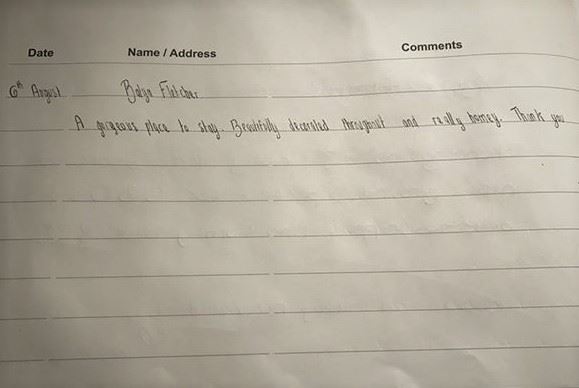 Date Name / Address Comments
6th August Fletcher
A gorgeous place to stay. Beautifully decorated throughout and really homey. Thank you